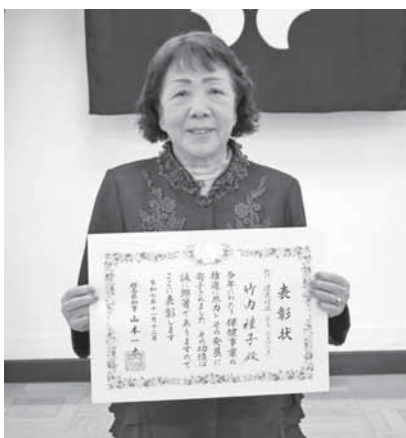 表彰状
竹内種子殿
多年にわたり保健事業の
推進に尽力しその発展に
寄与されました その功績は
誠に顕著でありますので
ここに表彰します
令和七年十一月十二日
群馬県知事 山本一太